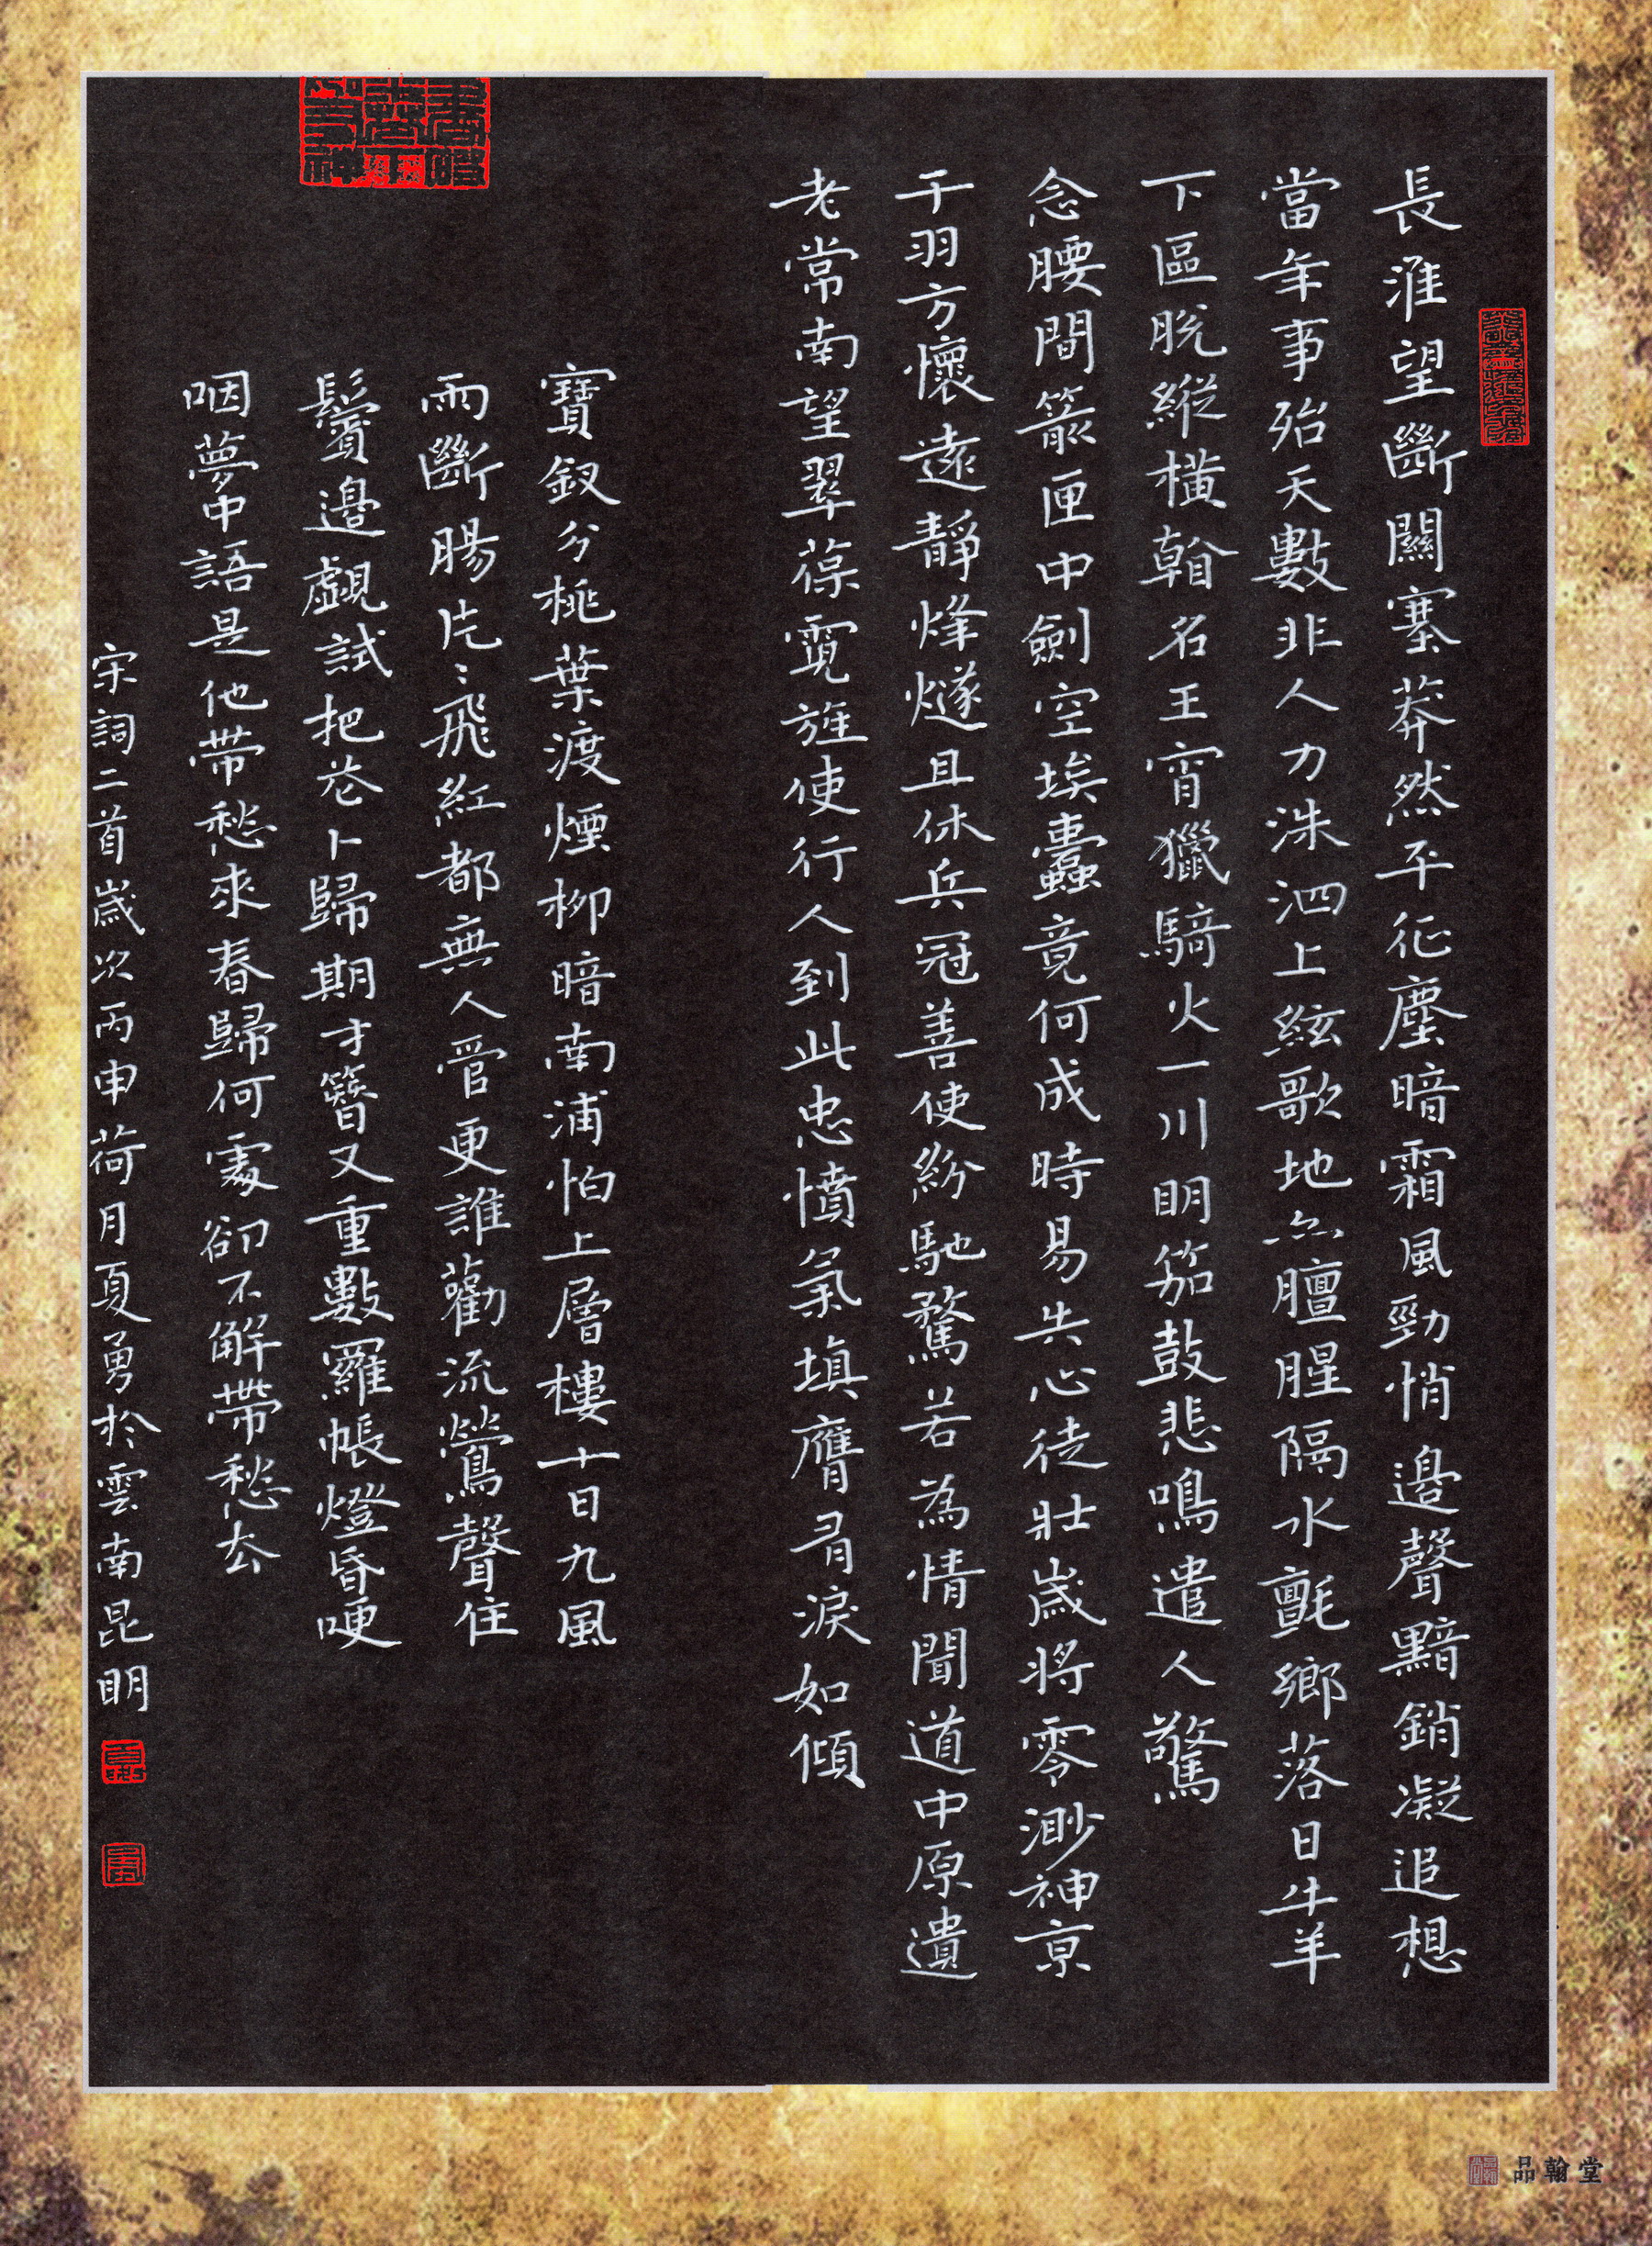 長淮望斷關塞莽然平征塵暗霜風勁悄邊聲黯銷凝追想
當年事殆天數非人力洙泗上絃歌地亦膻腥隔水氈鄉落日牛羊
下區脫縱橫翰名王宵獵騎火一川明笳鼓悲鳴遣人驚
念腰間箭匣中劍空埃蠹竟何成時易失心徒壯歲將零渺神京
干羽方懷遠靜烽燧且休兵冠善使紛馳騖若為情聞道中原遺
老常南望翠葆霓旌使行人到此忠憤氣填膺有淚如傾
寶釵分桃葉渡煙柳暗南浦怕上層樓十日九風
雨斷腸片〻飛紅都無人管更誰勸流鶯聲住
鬢邊覷試把花卜歸期才簪又重數羅帳燈昏哽
咽夢中語是他帶愁來春歸何處卻不解帶愁去
宋詞二首歲次丙申荷月夏勇於雲南昆明
品翰堂